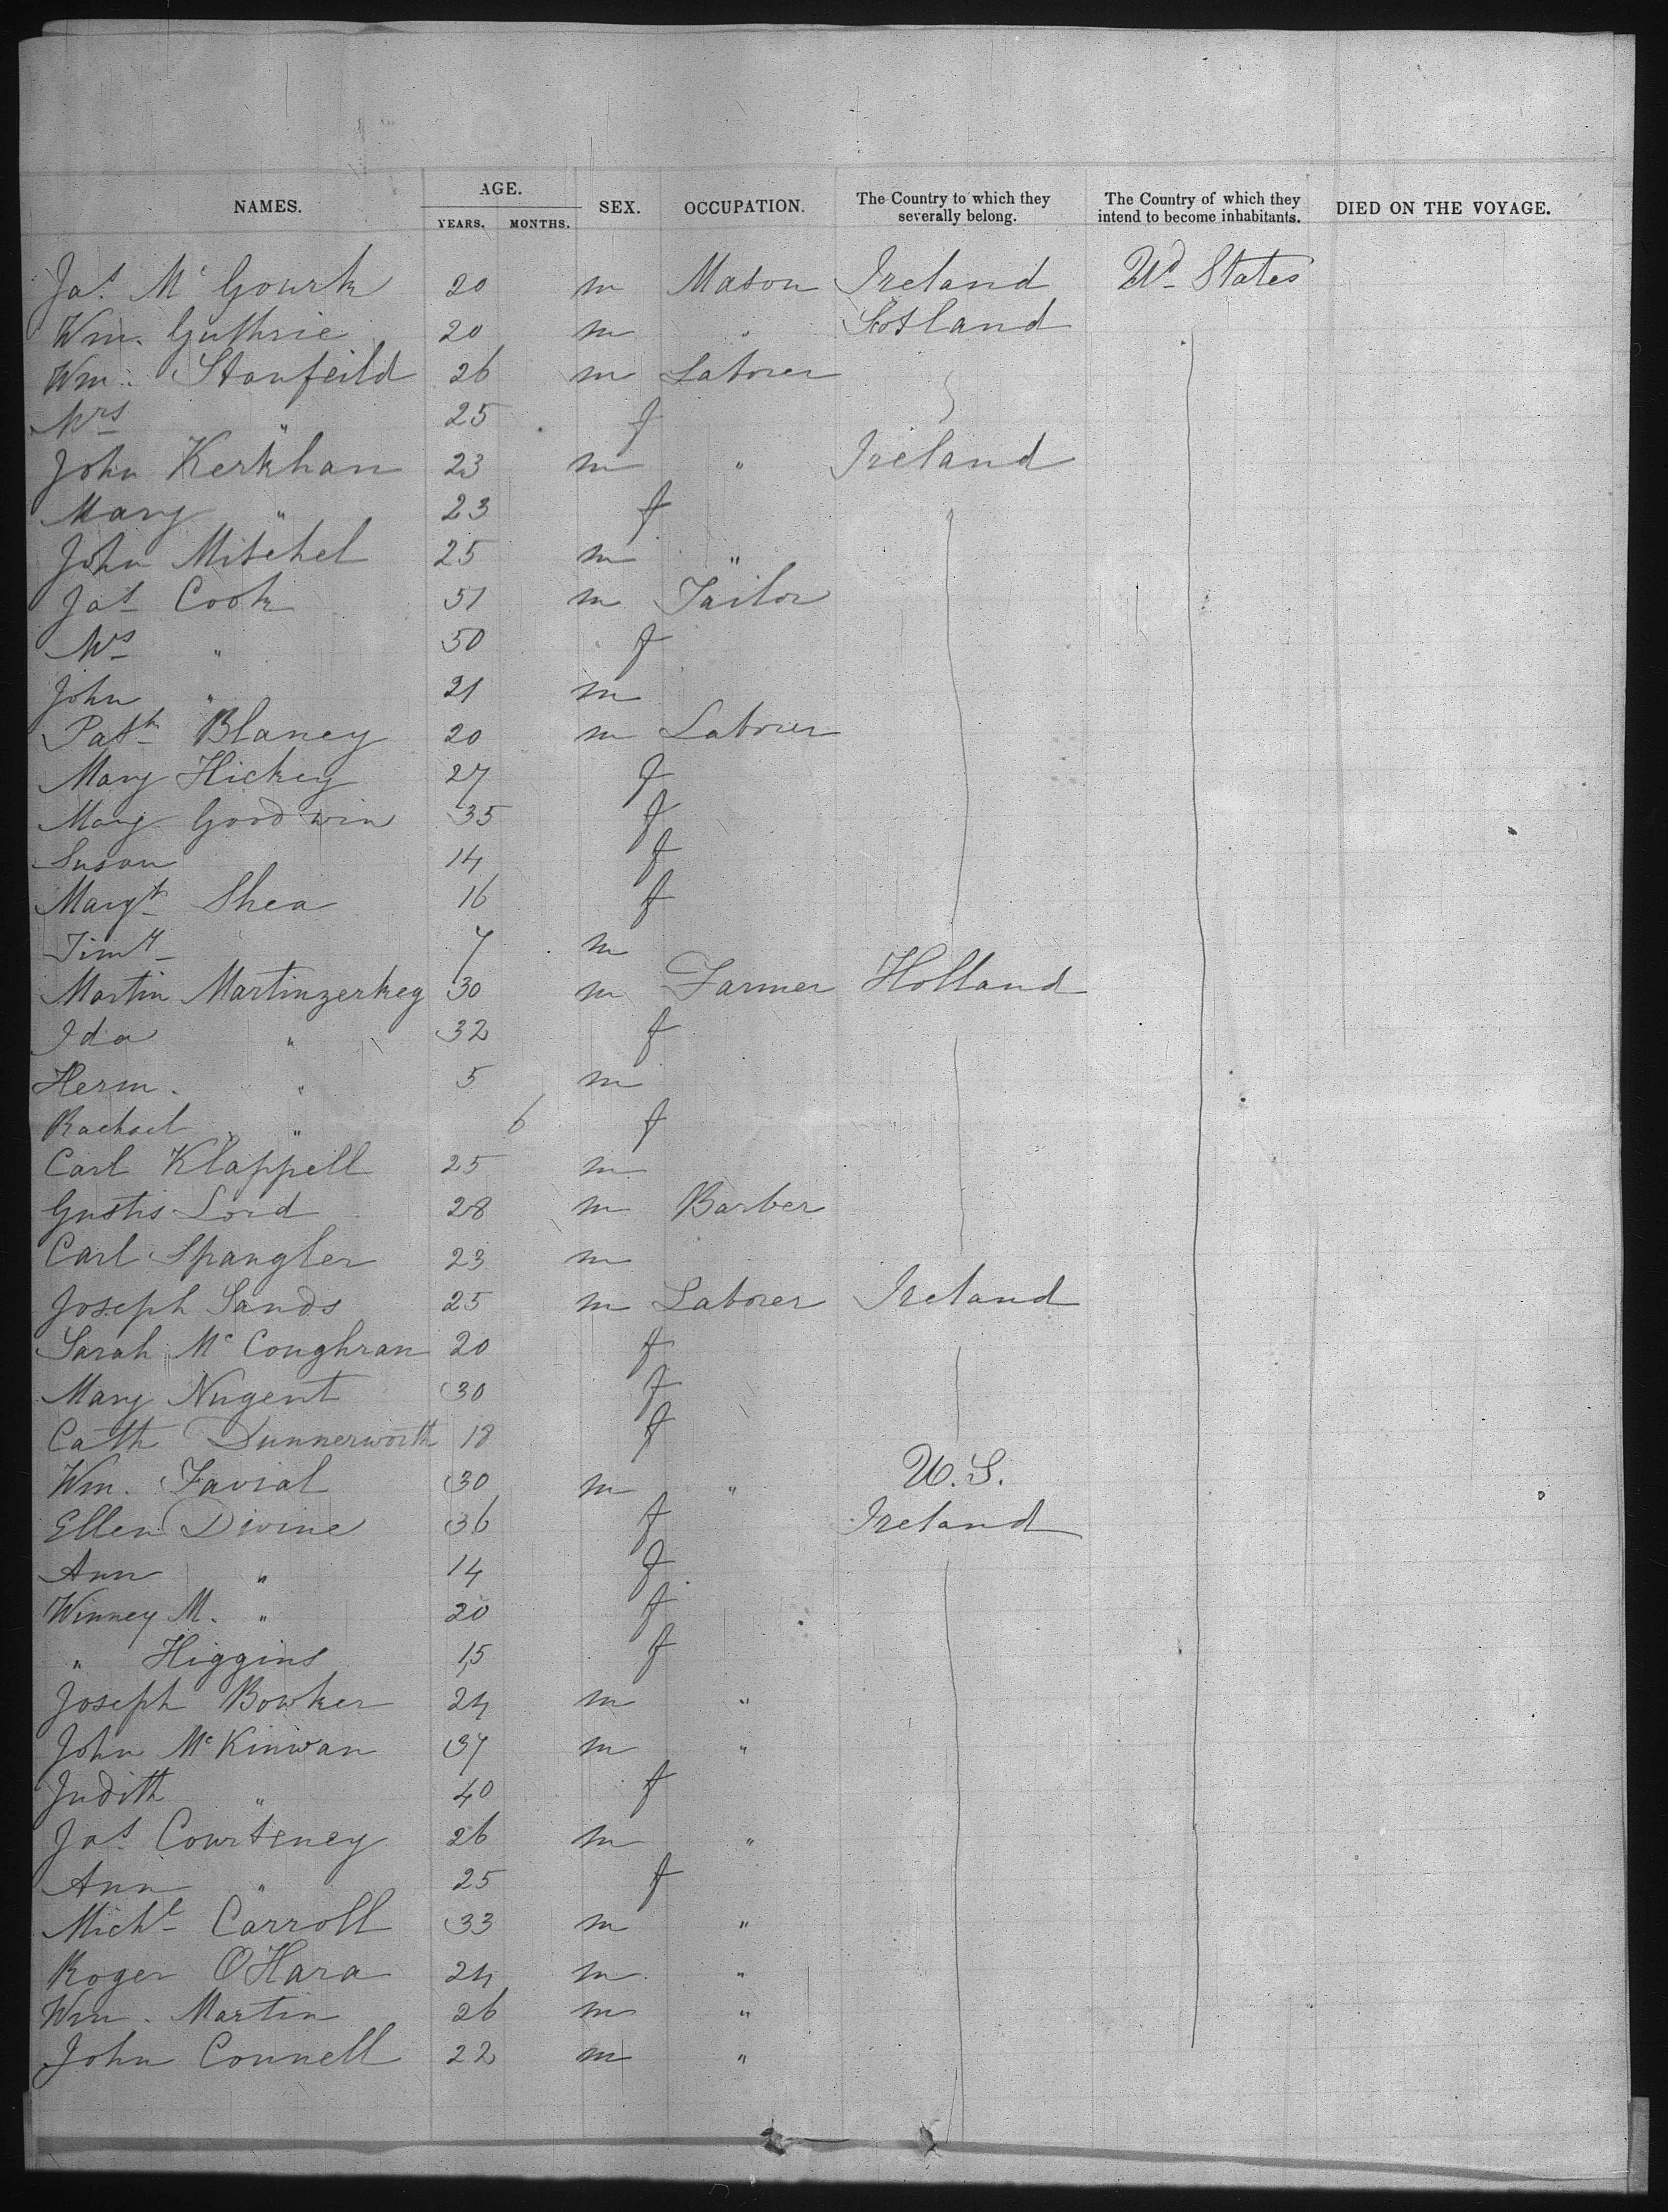 NAMES. AGE. YEARS. MONTHS. SEX. OCCUPATION. The Country to which they severally belong. The Country of which they intend to become inhabitants. DIED ON THE VOYAGE.
Jas. Mc Gourk 20 m Mason Ireland Ud States
Wm. Guthrie 20 m " Scotland
Wm. Stanfeild 26 m Laborer
Mrs " 25 f
John Kerkhan 23 m " Ireland
Mary " 23 f
John Mitchel 25 m "
Jas Cook 51 m Tailor
Mrs " 50 f
John " 21 m
Patk Blaney 20 m Laborer
Mary Hickey 27 f
Mary Goodwin 35 f
Susan 14 f
Margt Shea 16 f
Timy 7 m
Martin Martinzerkeg 30 m Farmer Holland
Ida " 32 f
Herm. " 5 m
Rachael " 6 f
Carl Klappell 25 m
Gustis Lord 28 m Barber
Carl Spangler 23 m
Joseph Sands 25 m Laborer Ireland
Sarah Mc Coughran 20 f
Mary Nugent 30 f
Cath Dunnerworth 18 f
Wm. Favial 30 m " U.S.
Ellen Divine 36 f Ireland
Ann " 14 f
Winney M. " 20 f
" Higgins 15 f
Joseph Bowker 24 m "
John McKinwan 37 m "
Judith " 40 f
Jas Courteney 26 m "
Ann " 25 f
Michl Carroll 33 m "
Roger O'Hara 24 m "
Wm. Martin 26 m "
John Connell 22 m "